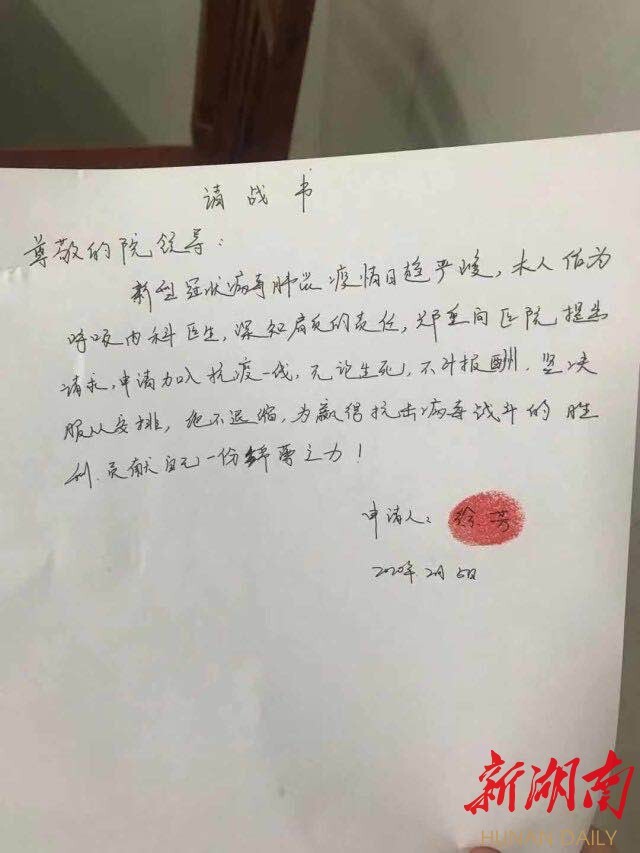 请战书
尊敬的院领导：
新型冠状病毒肺炎疫情日趋严峻，本人作为
呼吸内科医生，深知肩负的责任，郑重向医院提出
请求，申请加入抗疫一线，无论生死，不计报酬，坚决
服从安排，绝不退缩，为赢得抗击病毒战斗的胜
利，贡献自己一份绵薄之力！
申请人：徐芳
2020年2月5日
新湖南
HUNAN DAILY